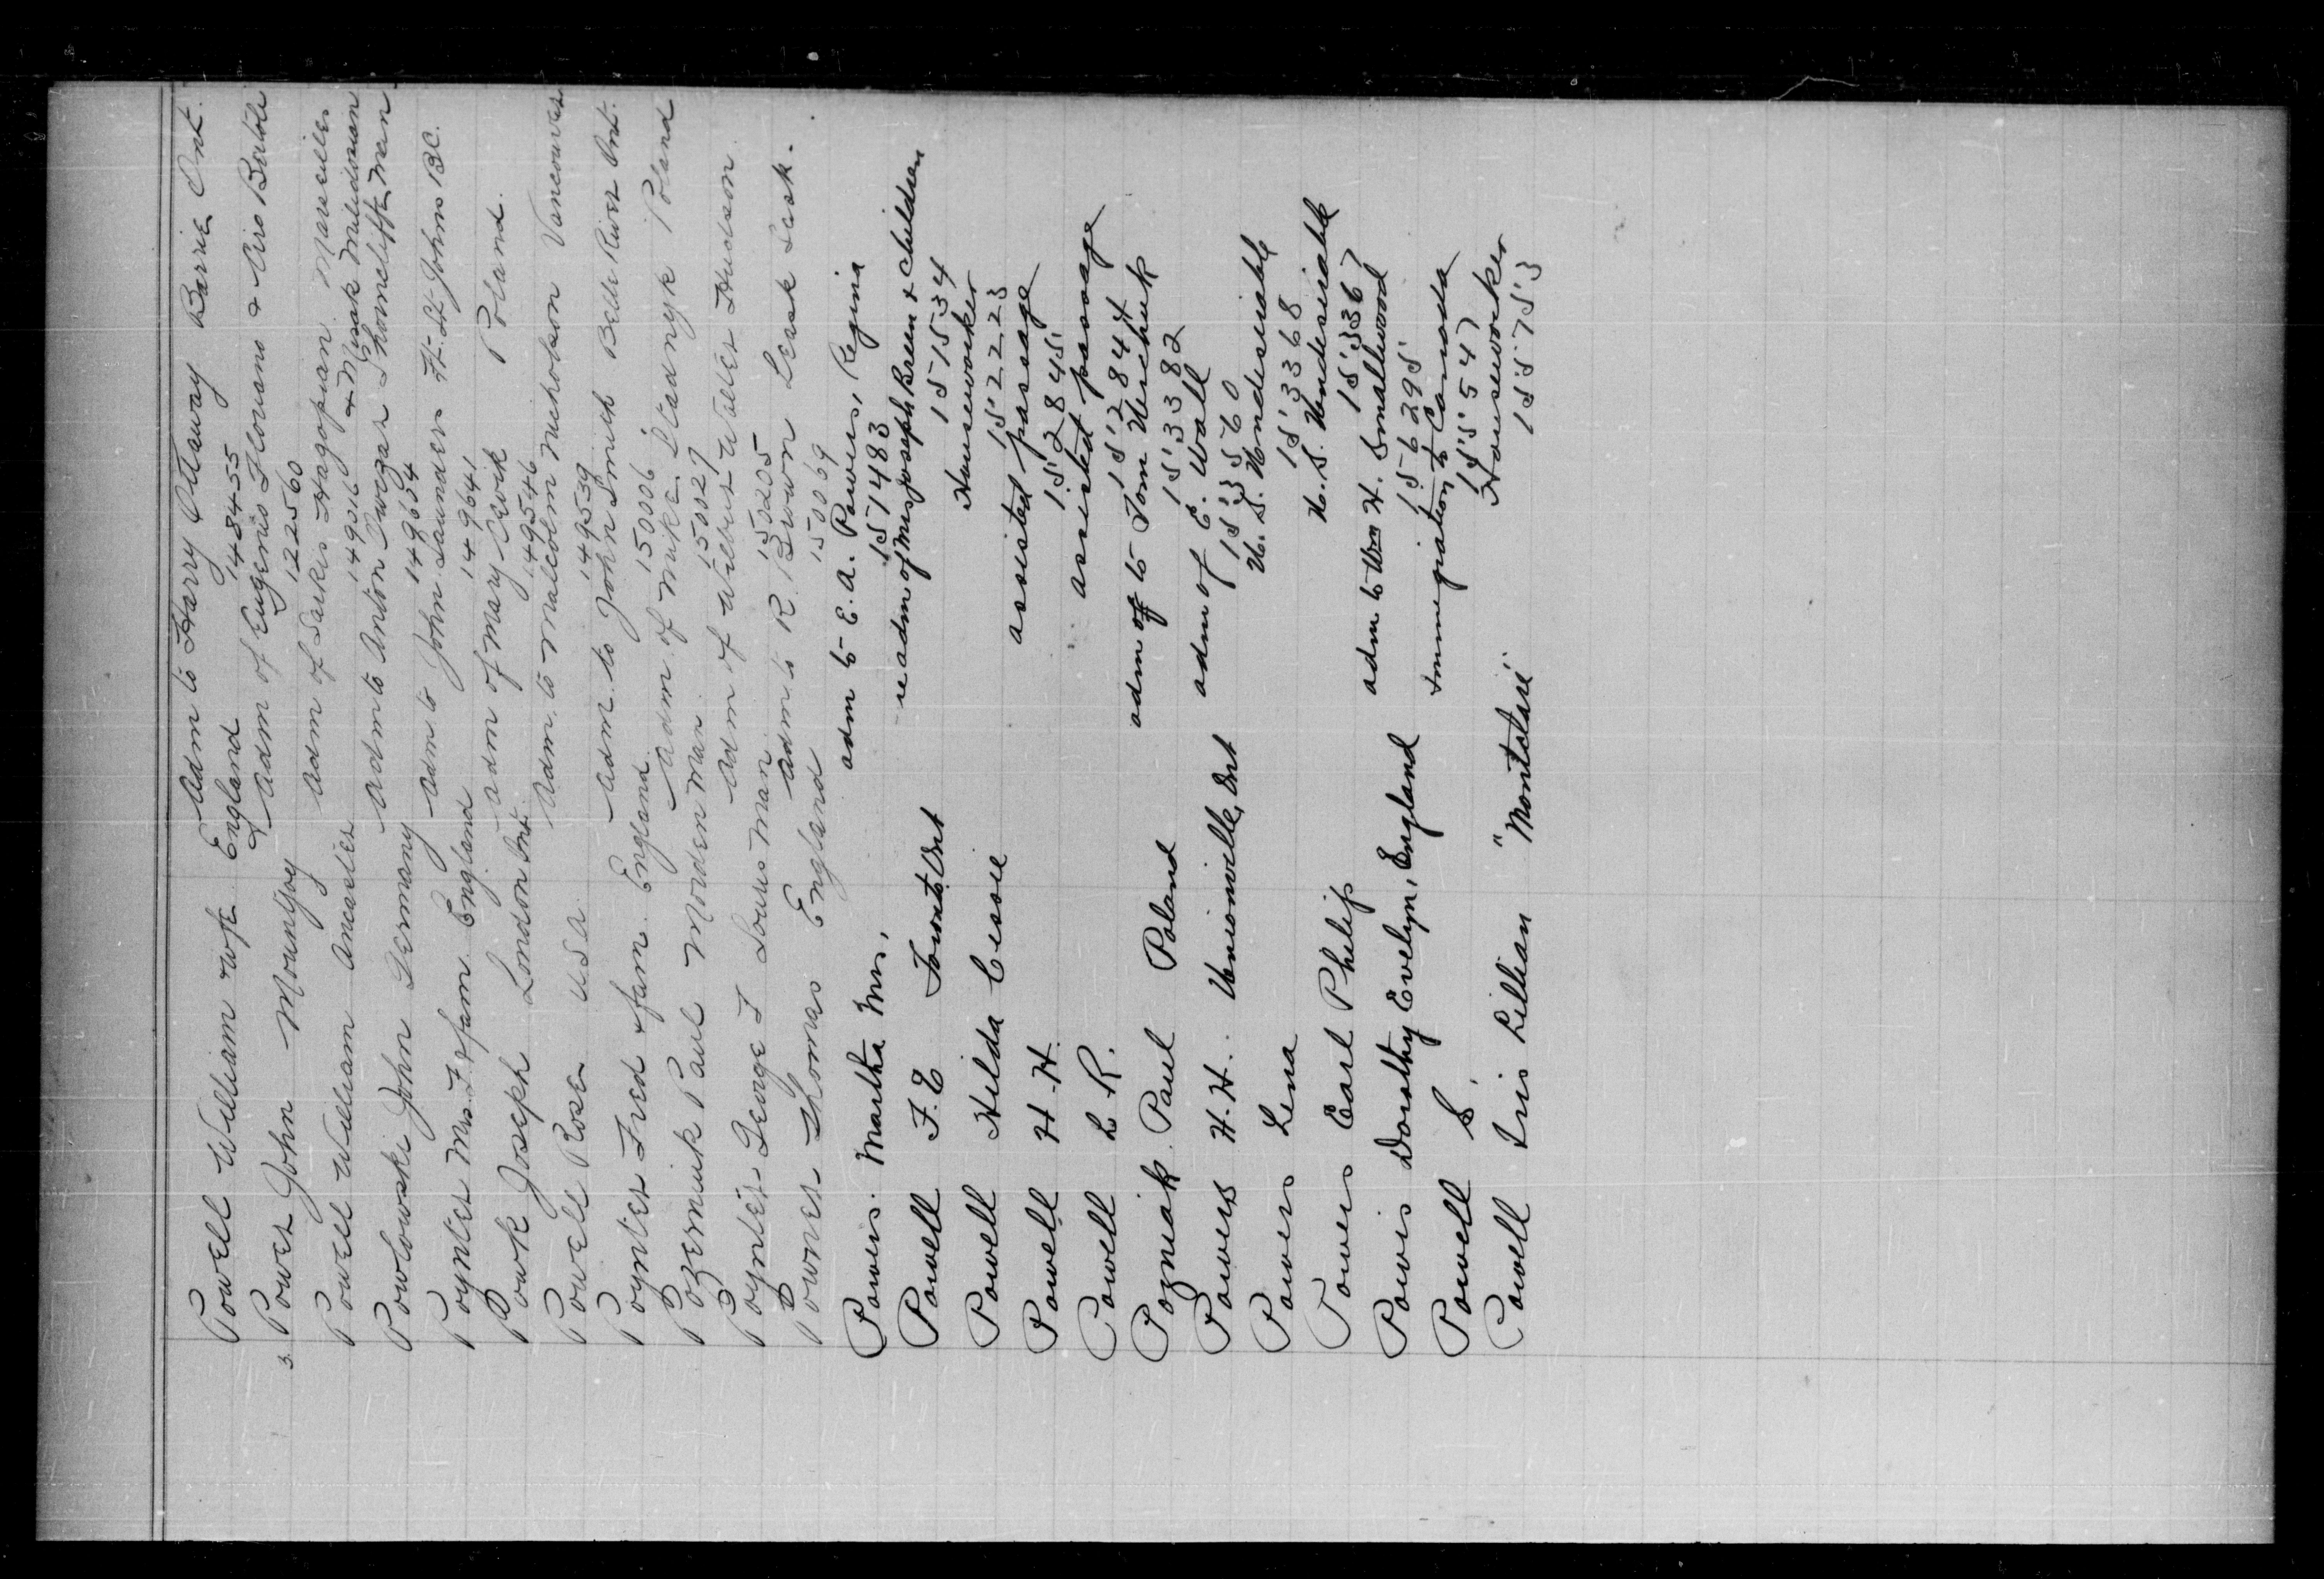 Powell William & wife England Adm to Harry Otaway Barrie Ont.
148455
3. Power John Mountjoy & Adm of Eugenio Flowano & Ciro Bortoli
122560
Powell William Ancaster Adm of Sarkis Hagopian Marseilles
149016 & Misak Mulidosian
Powlowski John Germany Adm to Anton Swegar Thorncliffe Man
149654
Poynter Mrs. F & fam England Adm to John Saunders Ft. St John BC.
149641
Powk Joseph London Ont. Adm of Mary Cwik Poland.
149546
Powell Rose USA Adm. to Malcolm Nicholson Vancouver
149539
Poynter Fred & fam. England Adm. to John Smith Belle River Ont.
150006
Pozerniuk Paul Morden Man Adm of Mike Stadnyk Poland
150029
Poynter George F Souris Man Adm of Wilbur Walter Hudson
150205
Powner Thomas England Adm to R. Brown Leask Sask.
150069
Powers. Martha Mrs, adm to E. A. Powers, Regina
151483
Powell F. E Toronto Ont re adm of Mrs Joseph Breen & children
151534
Powell Hilda Cissie Houseworker
152223
Powell H. H. assisted passage
152845
Powell L R. assisted passage
152844
Pozniak Paul Poland adm of to Tom Wichuk
153382
Powers H. H. Unionville, Ont adm of E. Wall
153560
Powers Lena U. S. Undesirable
153368
Powers Earl Philip U. S. Undesirable
153367
Powis Dorothy Evelyn, England adm to Wm H. Smallwood
156295
Powell S. Immigration to Canada
155547
Powell Iris Lillian "Montclare" Houseworker
155753